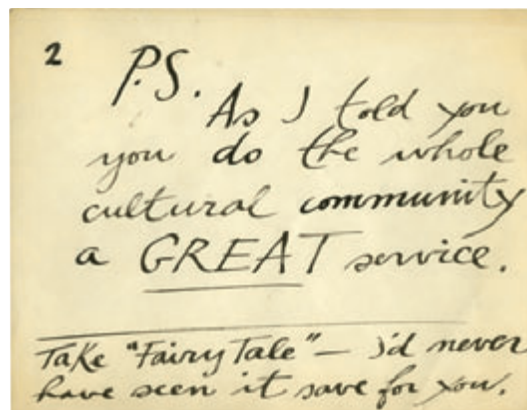 2
P.S.
As I told you
you do the whole
cultural community
a GREAT service.
Take "Fairy Tale" — I'd never
have seen it save for you.